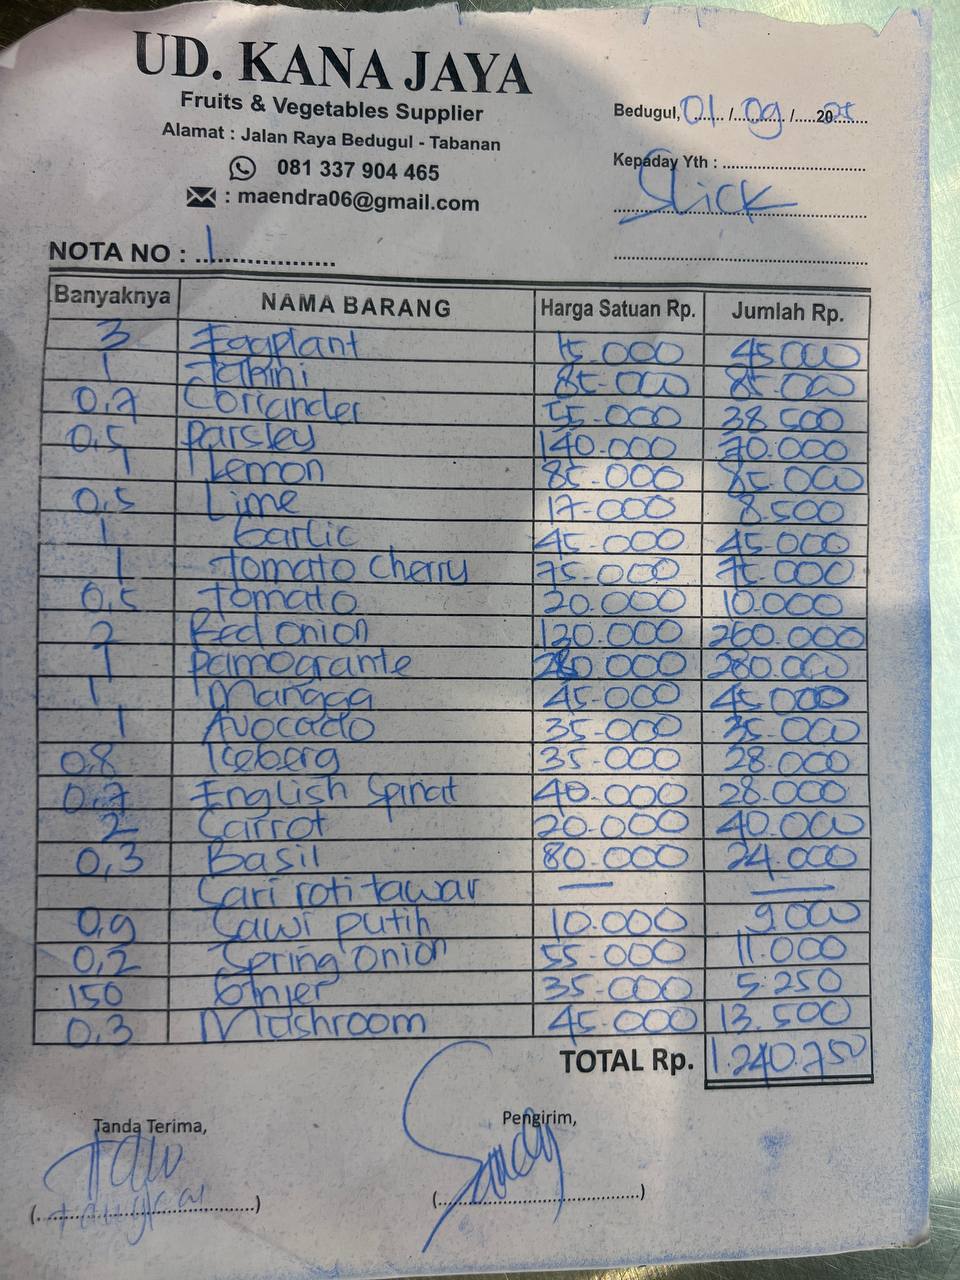 UD. KANA JAYA
Fruits & Vegetables Supplier
Alamat : Jalan Raya Bedugul - Tabanan
081 337 904 465
: maendra06@gmail.com
Bedugul, 01 / 09 / 2025
Kepaday Yth :
Slick
NOTA NO : 1
Banyaknya NAMA BARANG Harga Satuan Rp. Jumlah Rp.
3 Eggplant 15.000 45000
1 Tahini 85.000 85.000
0,7 Coriander 55.000 38500
0,5 Parsley 140.000 70.000
1 Lemon 85.000 85.000
0,5 Lime 17.000 8.500
1 Garlic 45.000 45.000
1 Tomato Cherry 75.000 75.000
0,5 Tomato 20.000 10.000
2 Red onion 120.000 260.000
1 Pamogrante 280.000 280.000
1 Mangga 45.000 45.000
1 Avocado 35.000 35.000
0,8 Iceberg 35.000 28.000
0,7 English Spinat 40.000 28.000
2 Carrot 20.000 40.000
0,3 Basil 80.000 24.000
Cari roti tawar — —
0,9 Sawi putih 10.000 9.000
0,2 Spring onion 55.000 11.000
150 Ginjer 35.000 5.250
0.3 Mushroom 45.000 13.500
TOTAL Rp. 1.240.750
Tanda Terima,
Pengirim,